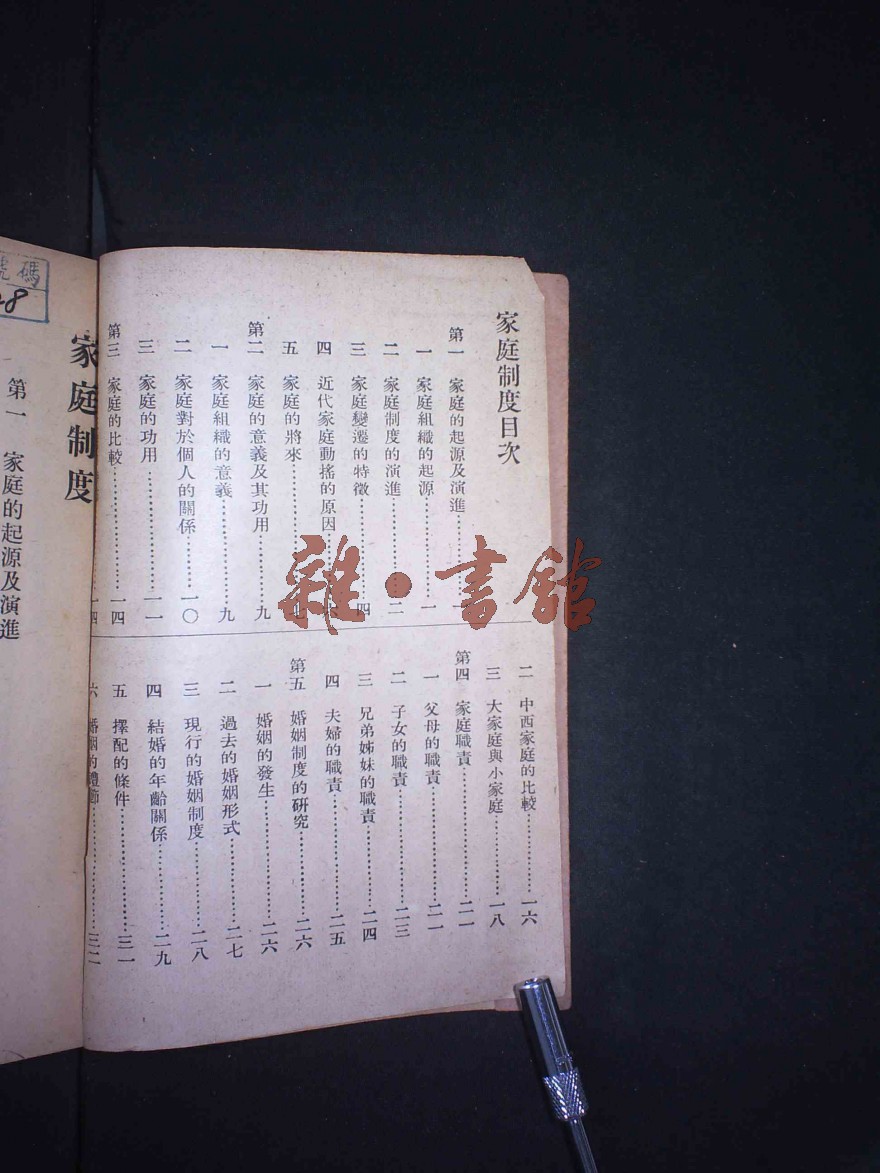 家庭制度目次
第一 家庭的起源及演進
一 家庭組織的起源……一
二 家庭制度的演進……二
三 家庭變遷的特徵……四
四 近代家庭動搖的原因
五 家庭的將來
第二 家庭的意義及其功用……九
一 家庭組織的意義……九
二 家庭對於個人的關係……一〇
三 家庭的功用……一一
第三 家庭的比較……一四
一四
二 中西家庭的比較……一六
三 大家庭與小家庭……一八
第四 家庭職責……二一
一 父母的職責……二一
二 子女的職責……二三
三 兄弟姊妹的職責……二四
四 夫婦的職責……二五
第五 婚姻制度的研究……二六
一 婚姻的發生……二六
二 過去的婚姻形式……二七
三 現行的婚姻制度……二八
四 結婚的年齡關係……二九
五 擇配的條件……三一
六 婚姻的禮節……三二
家庭制度
第一 家庭的起源及演進
號碼
8
雜·書館